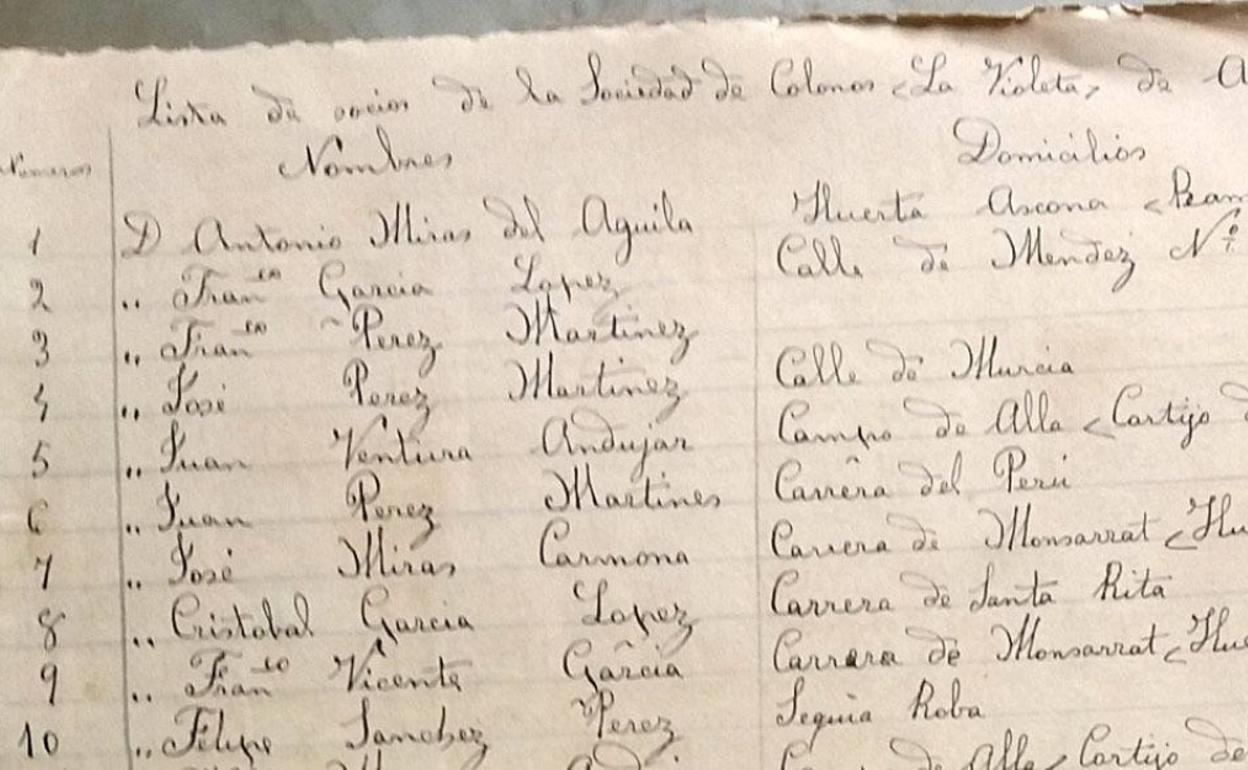 Lista de socios de la Sociedad de Colonos <La Violeta> de A
Numeros Nombres Domicilios
1 D Antonio Miras del Aguila Huerta Ascona <Ram
2 " Fran.co Garcia Lopez Calle de Mendez Nº
3 " Fran.co Perez Martinez
4 " José Perez Martinez Calle de Murcia
5 " Juan Ventura Andujar Campo de Alla <Cortijo d
6 " Juan Perez Martines Carrera del Perú
7 " José Miras Carmona Carrera de Monsarrat <Hu
8 " Cristobal Garcia Lopez Carrera de Santa Rita
9 " Fran.co Vicente Garcia Carrera de Monsarrat <Hue
10 " Felipe Sanchez Perez Sequia Roba
de Alla <Cortijo de